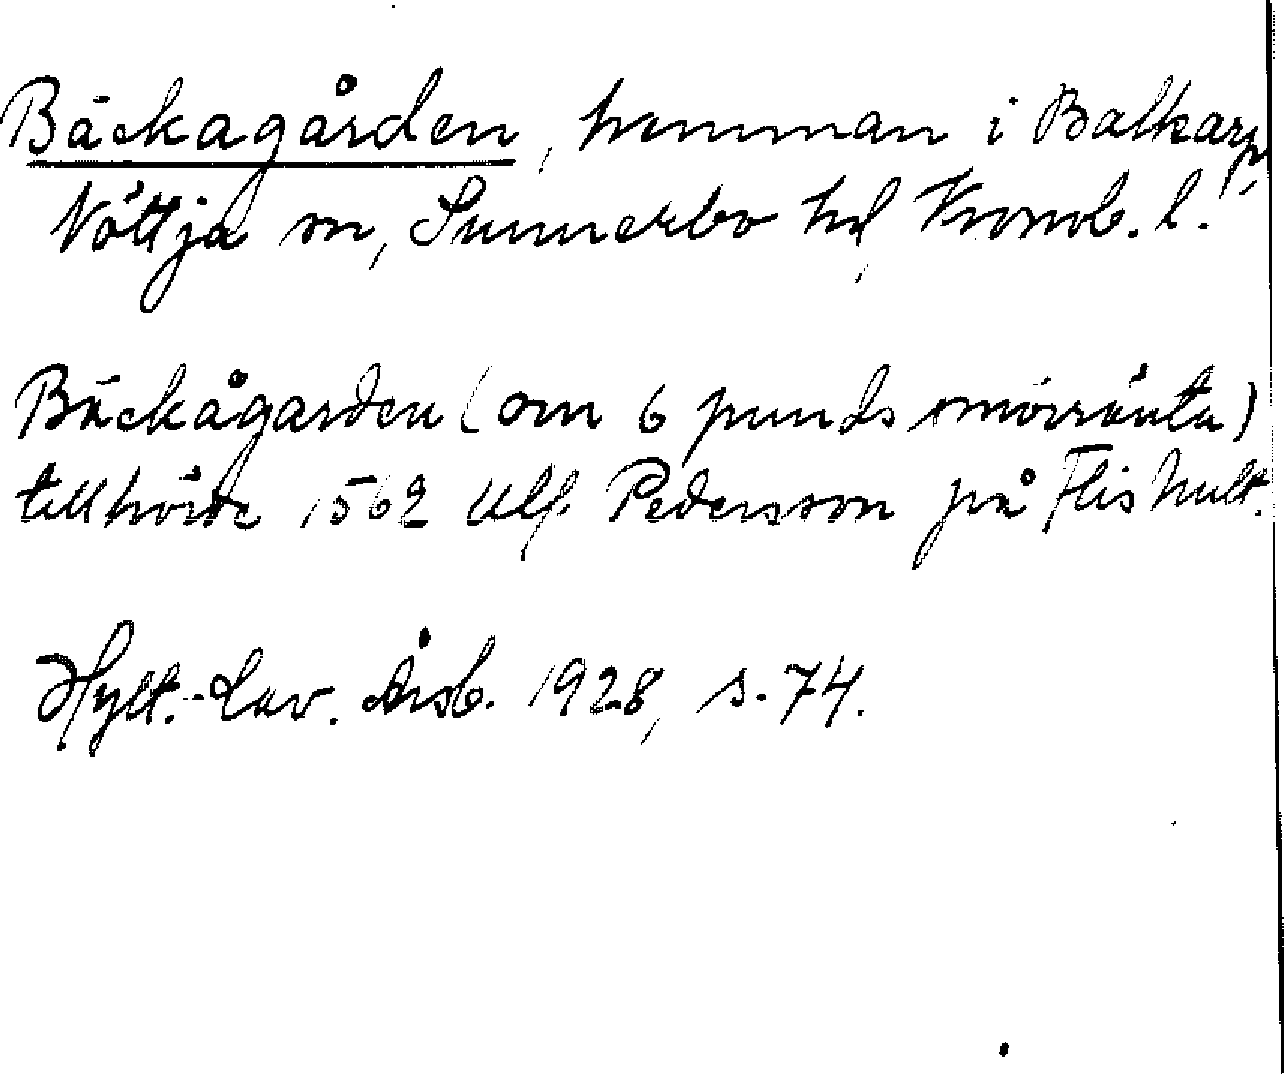 Bäckagården, hemman i Balkarp,
Nöttja sn, Sunnerbo hd, Kronob. l.
Bäckågarden (om 6 punds smörränta)
tillhörde 1562 Ulf Pedersson på Flishult.
Hylt.-Cav. Årsb. 1928, s. 74.